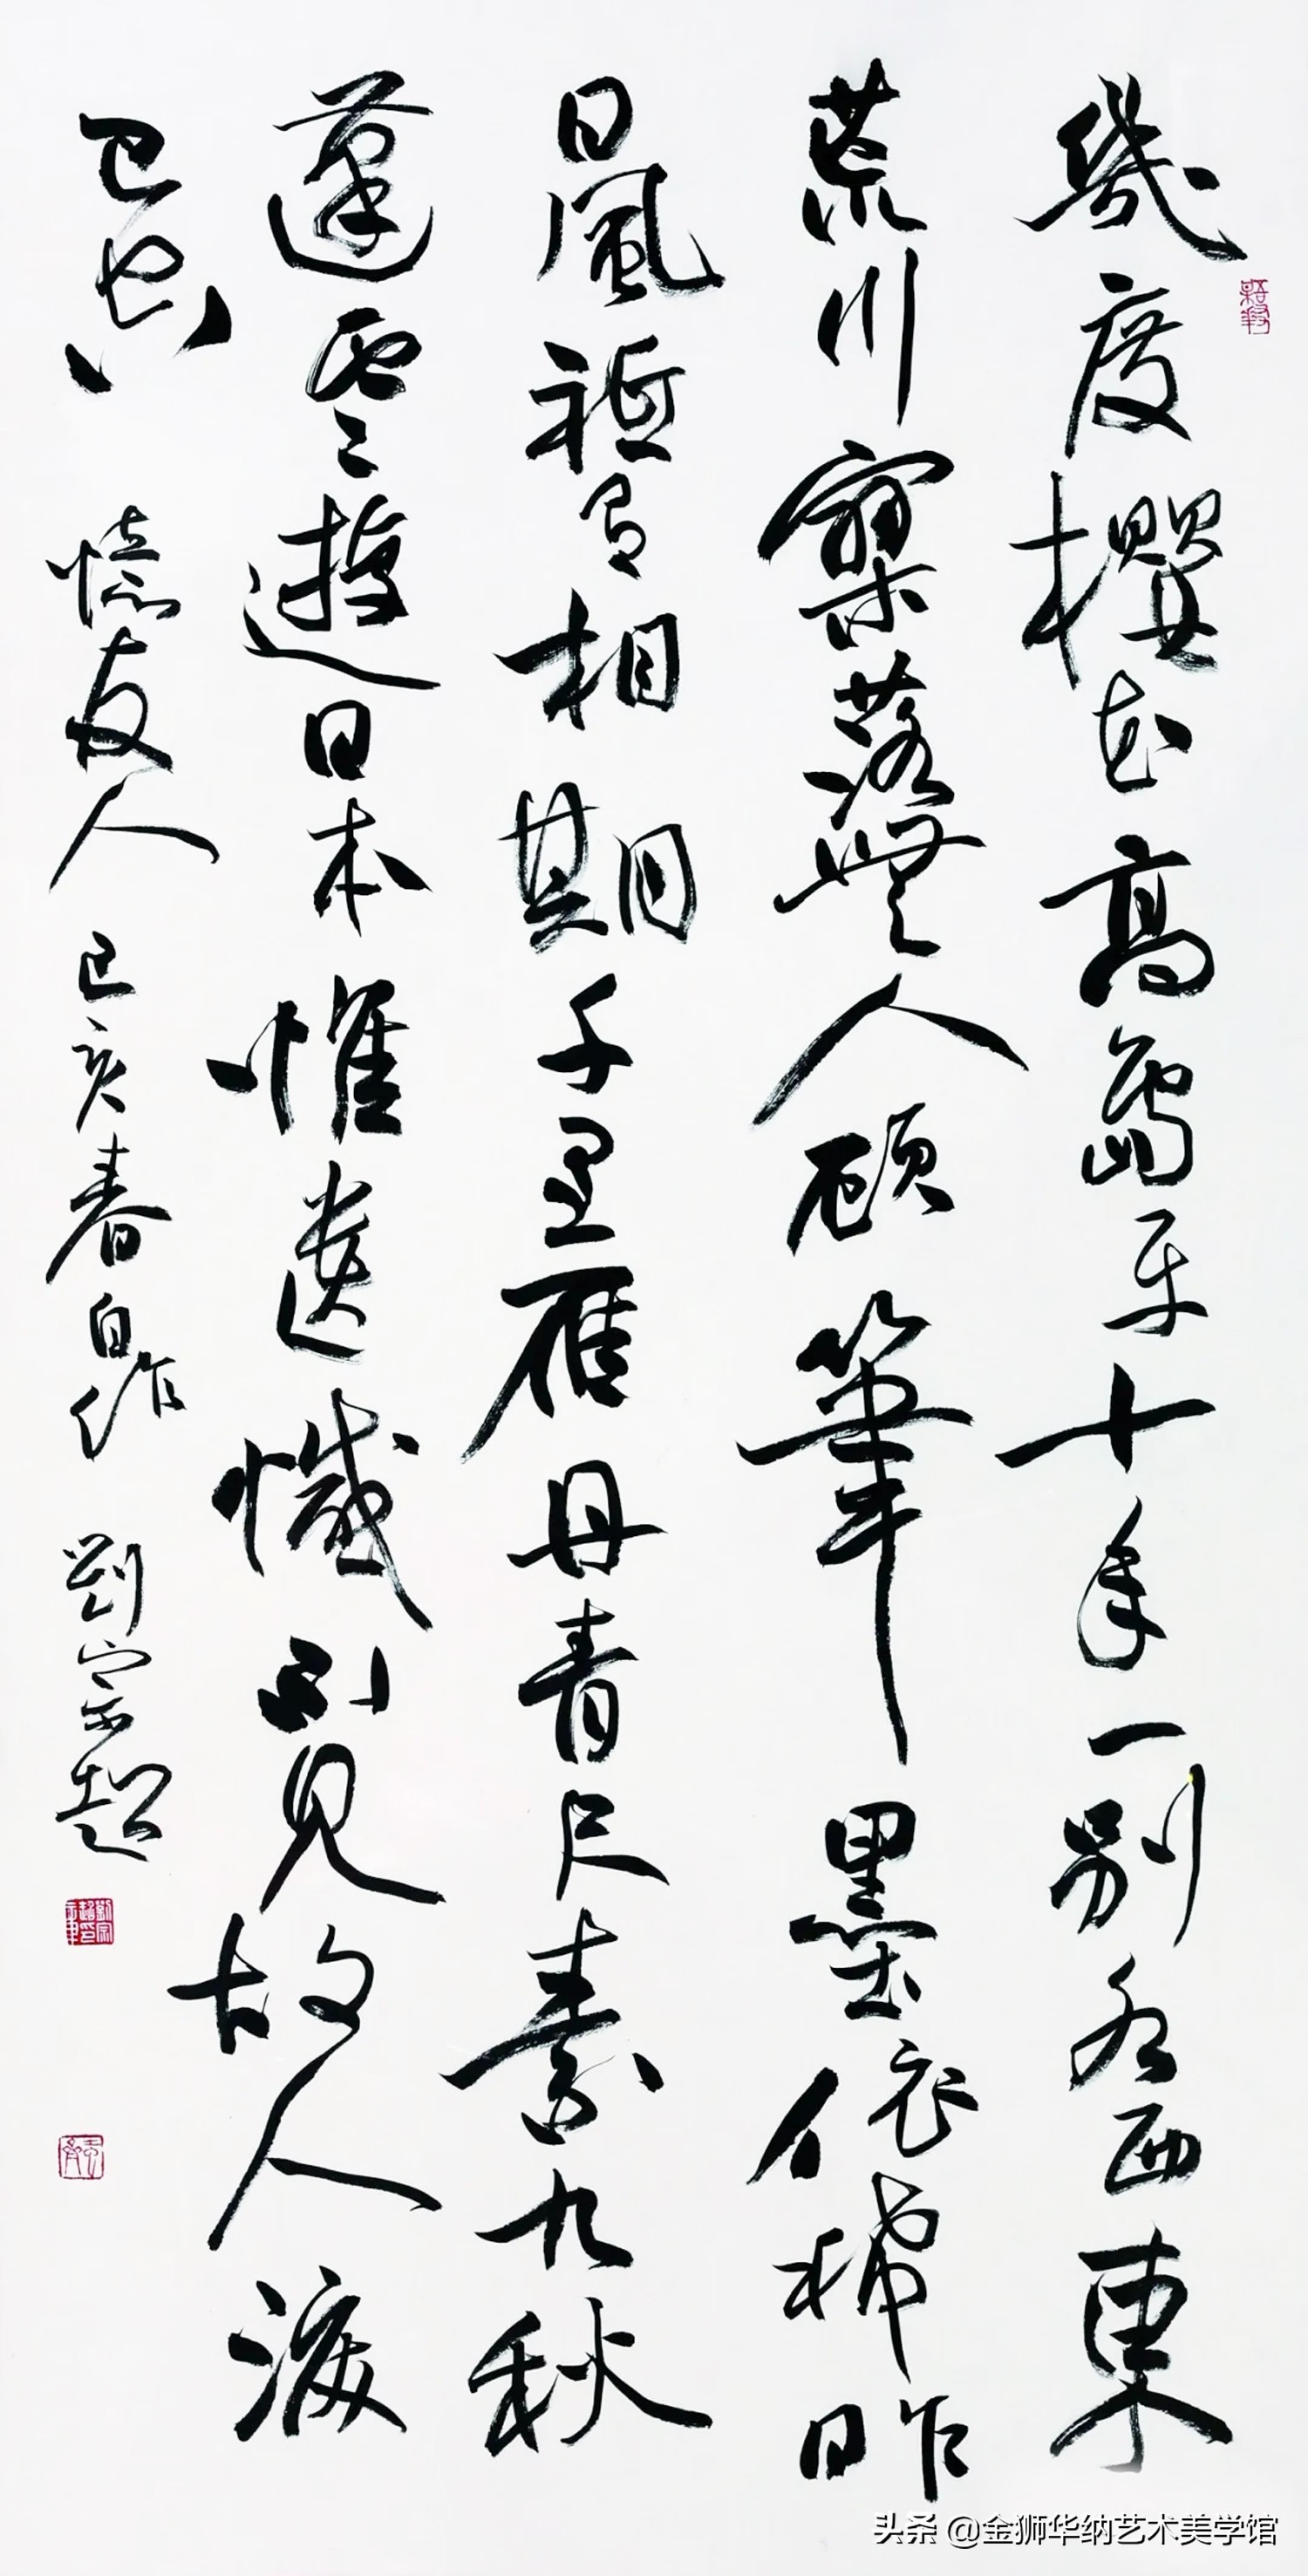 幾度櫻花高島平十年一別各西東
荒川寥落無人顧筆墨依稀昨
日風祗為相期千里雁丹青尺素九秋
蓬雲遊日本惟遺憾不見故人淚
已 憶友人 己亥春自作 劉宗超
头条 @金狮华纳艺术美学馆